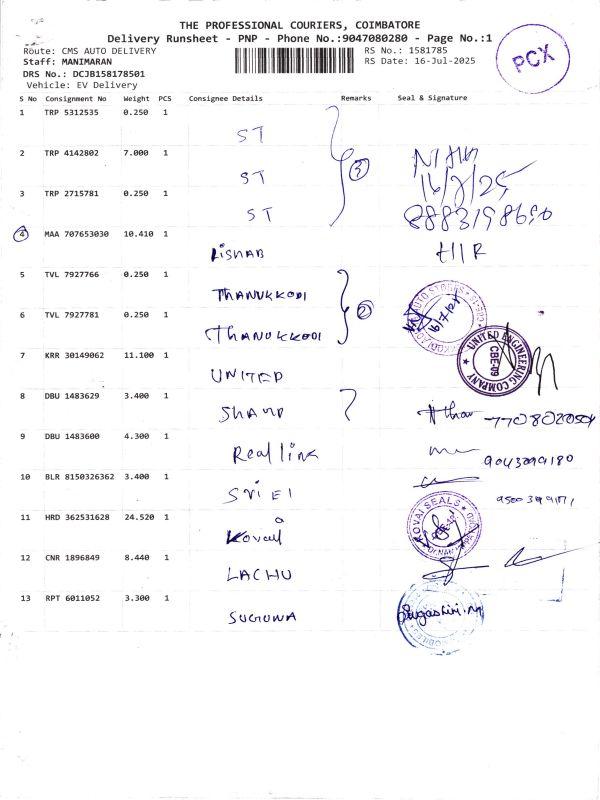 THE PROFESSIONAL COURIERS, COIMBATORE
Delivery Runsheet - PNP - Phone No.:9047080280 - Page No.:1
PCX
Route: CMS AUTO DELIVERY RS No.: 1581785
Staff: MANIMARAN RS Date: 16-Jul-2025
DRS No.: DCJB158178501
Vehicle: EV Delivery
S No Consignment No Weight PCS Consignee Details Remarks Seal & Signature
1 TRP 5312535 0.250 1 ST
2 TRP 4142802 7.000 1 ST 3
3 TRP 2715781 0.250 1 ST 16/7/25
4 MAA 707653030 10.410 1 RISHAB
5 TVL 7927766 0.250 1 THANUKKODI 2
6 TVL 7927781 0.250 1 THANUKKODI 16/7/25
7 KRR 30149062 11.100 1 UNITED UNITED ENGINEERING COMPANY CBE-09
8 DBU 1483629 3.400 1
9 DBU 1483600 4.300 1 Real link
10 BLR 8150326362 3.400 1
11 HRD 362531628 24.520 1 Kovai KOVAI SEALS
12 CNR 1896849 8.440 1 LACHU
13 RPT 6011052 3.300 1 SUGUNA